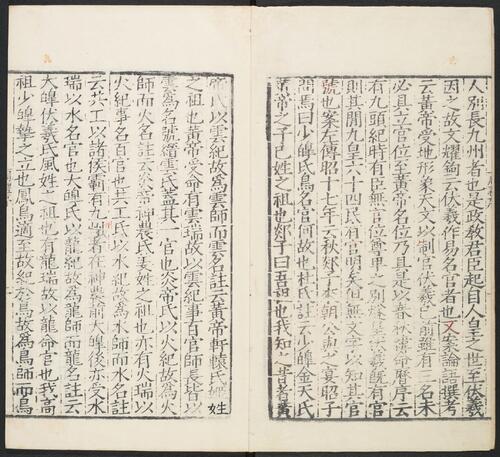 人別長九州者也是政教君臣起自人皇之世至伏羲
因之故文耀鉤云伏羲作易名官者也又案論語撰考
云黃帝受地形象天文以制官伏羲已前雖有三名未
必具立官位至黃帝名位乃具是以春秋緯命曆序云
有九頭紀時有臣無官位尊卑之別燧皇伏羲既有官
則其間九皇六十四民有官明矣但無文字以知其官
號也案左傳昭十七年云秋郯子來朝公與之宴昭子
問焉曰少皥氏鳥名官何故也杜氏註云少皥金天氏
黃帝之子己姓之祖也郯子曰吾祖也我知之昔者黃
帝氏以雲紀故為雲師而雲名註云黃帝軒轅氏姬姓
之祖也黃帝受命有雲瑞故以雲紀事百官師長皆以
雲為名號縉雲氏蓋其一官也炎帝氏以火紀故為火
師而火名註云炎帝神農氏姜姓之祖也亦有火瑞以
火紀事名百官也共工氏以水紀故為水師而水名註
云共工以諸侯霸有九州者在神農前大皥後亦受水
瑞以水名官也大皥氏以龍紀故為龍師而龍名註云
大皥伏羲氏風姓之祖也有龍瑞故以龍命官也我高
祖少皥摯之立也鳳鳥適至故紀於鳥故為鳥師而鳥